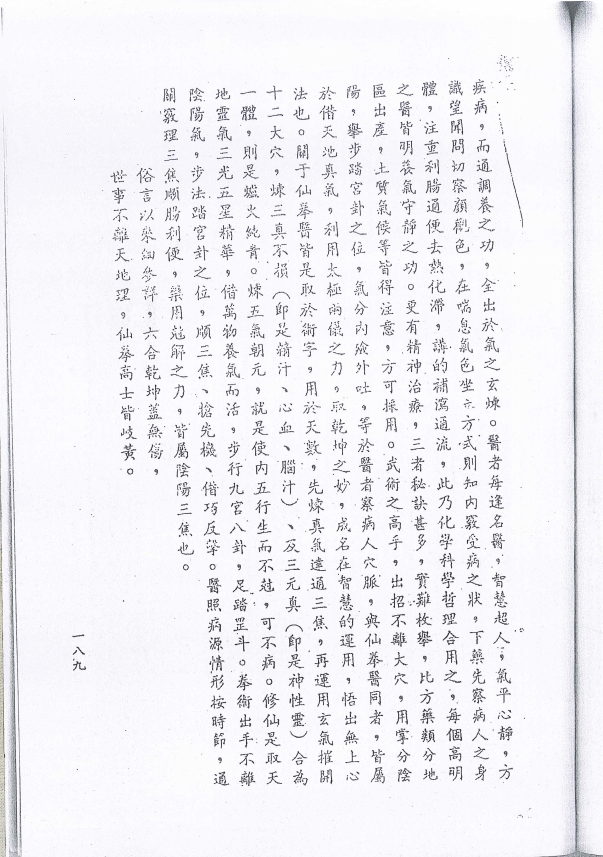 疾病，而通調養之功，全出於氣之玄煉。醫者每逢名醫，智慧超人，氣平心靜，方
識望聞問切察顏觀色，在喘息氣色坐立方式則知內竅受病之狀，下藥先察病人之身
體，注重利腸通便去熱化滯，講的補瀉通流，此乃化學科學哲理合用之，每個高明
之醫皆明養氣守靜之功。更有精神治療，三者秘訣甚多，實難枚舉，比方藥類分地
區出產，土質氣候等皆得注意，方可採用。武術之高乎，出招不離大穴，用掌分陰
陽，舉步踏宮卦之位，氣分內斂外吐，等於醫者察病人穴脈，與仙拳醫同者，皆屬
於借天地真氣，利用太極兩儀之力，取乾坤之妙，成名在智慧的運用，悟出無上心
法也。關于仙拳醫皆是取於術字，用於天數，先煉真氣遠通三焦，再運用玄氣摧開
十二大穴，煉三真不損（即是精汁、心血、腦汁）、反三元真（即是神性靈）合為
一體，則是爐火純青。煉五氣朝元，就是使內五行生而不尅，可不病。修仙是取天
地靈氣三光五星精華，借萬物養氣而活，步行九宮八卦，足踏罡斗。拳術出手不離
陰陽氣，步法踏宮卦之位，順三焦、搶先機、借巧反擊。醫照病源情形按時節，通
關竅理三焦順腸利便，藥用尅解之力，皆屬陰陽三焦也。
俗言以來細參詳，六合乾坤蓋無傷，
世事不離天地理，仙拳高士皆岐黃。
一八九